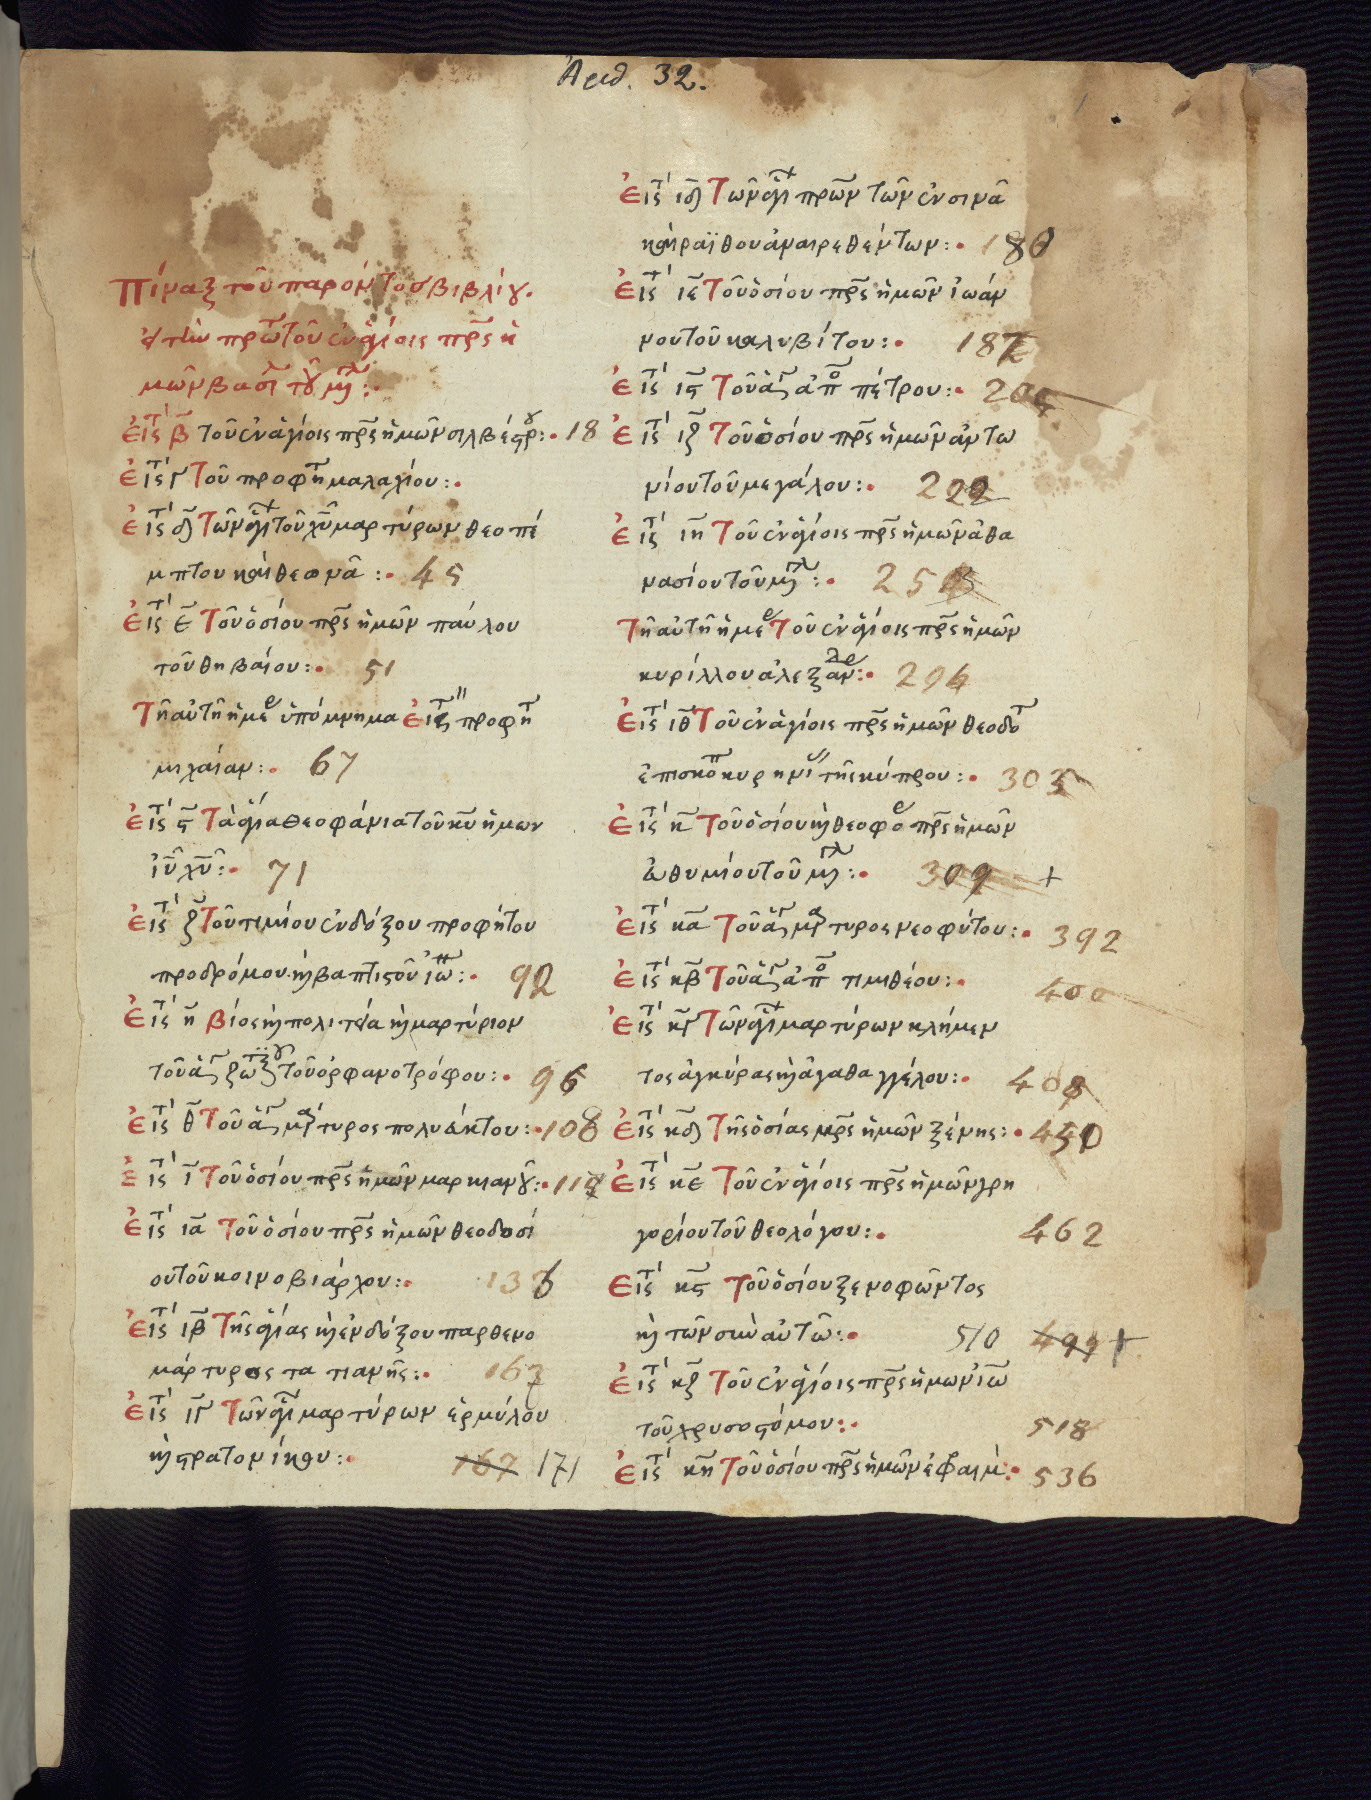 Ἀριθ. 32.
Πίναξ τοῦ παρόντος βιβλίου.
εἰς τὴν πρώτην τοῦ ἐν ἁγίοις πρς ἡ
μῶν βασι τοῦ μγλ :·
Εἰς τ β τοῦ ἐν ἁγίοις πρς ἡμῶν σιλβέστρου :· 18
Εἰς τ γ Τοῦ προφητ μαλαχίου :·
Εἰς τ δ Τῶν ἁγι τοῦ χυ μαρτύρων θεοπέ
μπτου καὶ θεωνᾶ :· 45
Εἰς τ ε Τοῦ ὁσίου πρς ἡμῶν παύλου
τοῦ θηβαίου :· 51
Τῆ αὐτῆ ἡμε ὑπόμνημα Εἰς τ προφητ
μιχαίαν :· 67
Εἰς τ ς Τὰ ἅγια θεοφάνια τοῦ κυ ἡμων
ἰυ χυ :· 71
Εἰς τ ζ Τοῦ τιμίου ἐνδόξου προφήτου
προδρόμου κὶ βαπτιστοῦ ἰω :· 92
Εἰς τ η Βίος κὶ πολιτεία κὶ μαρτύριον
τοῦ ἁγ ζωτικοῦ τοῦ ὀρφανοτρόφου :· 96
Εἰς τ θ Τοῦ ἁγ μαρτυρος πολυεύκτου :· 108
Εἰς τ ι Τοῦ ὁσίου πρς ἡμῶν μαρκιανοῦ :· 119
Εἰς τ ια Τοῦ ὁσίου πρς ἡμῶν θεοδοσί
ου τοῦ κοινοβιάρχου :· 136
Εἰς τ ιβ Τῆς ἁγίας κὶ ἐνδόξου παρθενο
μάρτυρος τατιανῆς :· 163
Εἰς τ ιγ Τῶν ἁγι μαρτύρων ἑρμύλου
κὶ στρατονίκου :· 167 171
Εἰς τ ιδ Τῶν ἁγι πρων τῶν ἐν σινᾶ
καὶ ραϊθοῦ ἀναιρεθέντων :· 180
Εἰς τ ιε Τοῦ ὁσίου πρς ἡμῶν ἰωάν
νου τοῦ καλυβίτου :· 187
Εἰς τ ις Τοῦ ἁγ ἀπο πέτρου :· 205
Εἰς τ ιζ Τοῦ ὁσίου πρς ἡμῶν ἀντω
νίου τοῦ μεγάλου :· 222
Εἰς τ ιη Τοῦ ἐν ἁγίοις πρς ἡμῶν ἀθα
νασίου τοῦ μγλ :· 254
Τῆ αὐτῆ ἡμε Τοῦ ἐν ἁγίοις πρς ἡμῶν
κυρίλλου ἀλεξαν :· 294
Εἰς τ ιθ Τοῦ ἐν ἁγίοις πρς ἡμῶν θεοδοτ
ἐπισκοπ κυρηνί τῆς κύπρου :· 303
Εἰς τ κ Τοῦ ὁσίου κὶ θεοφο πρς ἡμῶν
εὐθυμίου τοῦ μγλ :· 309 +
Εἰς τ κα Τοῦ ἁγ μαρτυρος νεοφύτου :· 392
Εἰς τ κβ Τοῦ ἁγ ἀπο τιμοθέου :· 400
Εἰς τ κγ Τῶν ἁγι μαρτύρων κλήμεν
τος ἀγκύρας κὶ ἀγαθαγγέλου :· 408
Εἰς τ κδ Τῆς ὁσίας μρς ἡμῶν ξένης :· 450
Εἰς τ κε Τοῦ ἐν ἁγίοις πρς ἡμῶν γρη
γορίου τοῦ θεολόγου :· 462
Εἰς τ κς Τοῦ ὁσίου ξενοφῶντος
κὶ τῶν σὺν αὐτῶ :· 510 499 +
Εἰς τ κζ Τοῦ ἐν ἁγίοις πρς ἡμῶν ἰω
τοῦ χρυσοστόμου :· 518
Εἰς τ κη Τοῦ ὁσίου πρς ἡμῶν ἐφραιμ :· 536